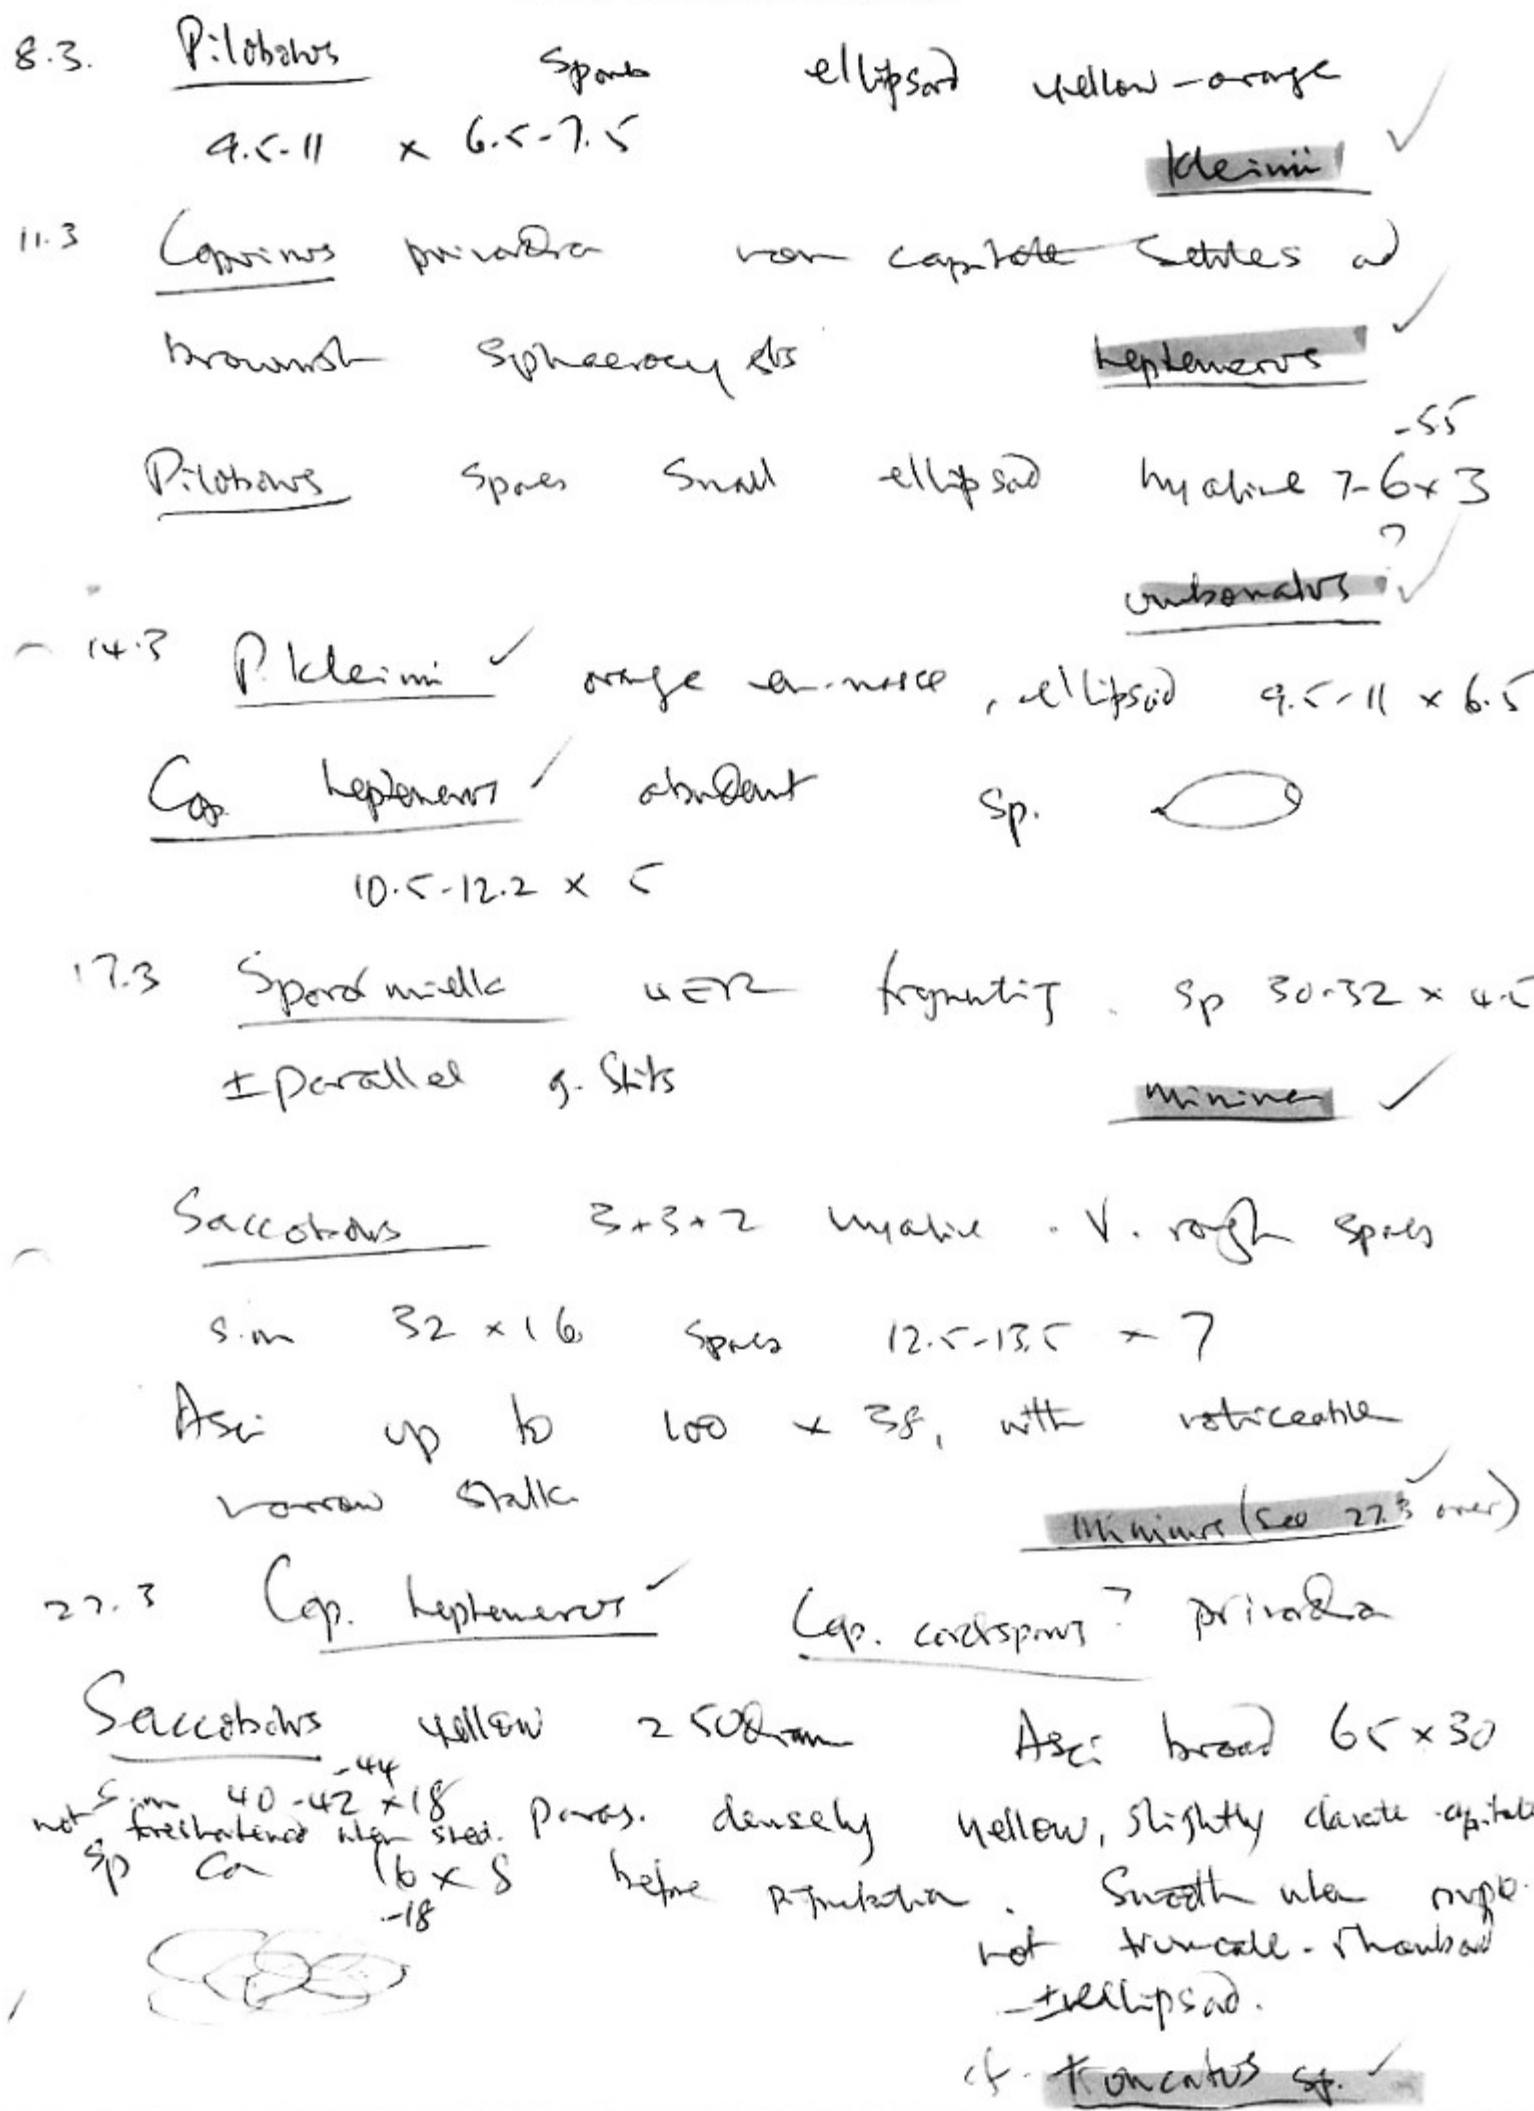 8.3. Pilobolus spores ellipsoid yellow-orange
9.5-11 x 6.5-7.5
kleinii ✓
11.3 Coprinus primordia non capitate setules and
brownish sphaerocysts heptemerus ✓
-55
Pilobolus spores small ellipsoid hyaline 7-6 x 3
umbonatus ? ✓
14.3 P. kleinii ✓ orange en-masse, ellipsoid 9.5-11 x 6.5
Cop. heptemerus ✓ abundant sp.
10.5-12.2 x 5
17.3 Sporormiella fragmenting. sp 30-32 x 4.5
± parallel g. slits minima ✓
Saccobolus 3+3+2 hyaline. V. rough spores
s.m 32 x 16 spores 12.5-13.5 x 7
Asci up to 100 x 38, with noticeable
narrow stalk
minimus (see 27.3 over) ✓
27.3 Cop. heptemerus ✓ Cop. cordisporus? primordia
Saccobolus yellow 250 Asci broad 65 x 30
-44
s.m 40-42 x 18 Paras. densely yellow, slightly clavate-capitate
not when shed.
sp ca 16 x 8 before pigmentation. Smooth when
-18
not truncate-rhomboid
- ± ellipsoid.
cf. truncatus sp. ✓